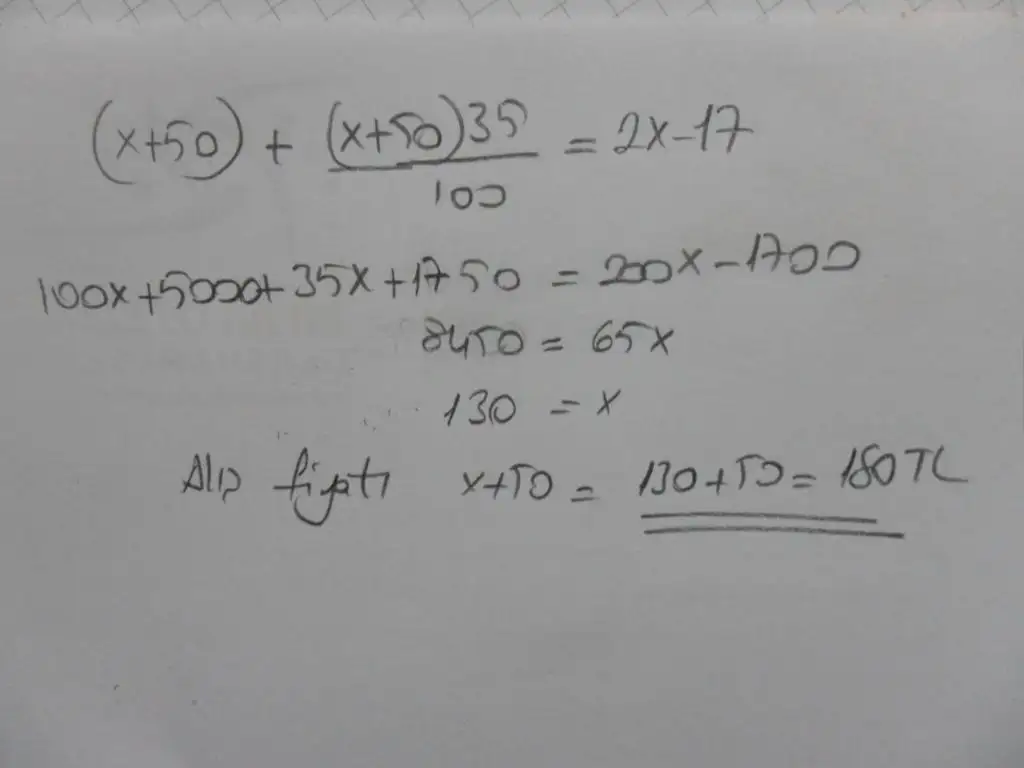 (x+50) + (x+50)35/100 = 2x-17
100x+5000+35x+1750 = 200x-1700
8450 = 65x
130 = x
Alış fiyatı x+50 = 130+50= 180 TL